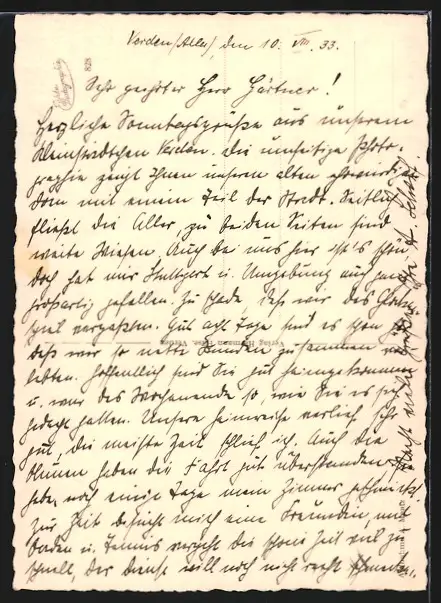 Verden/Aller, den 10. VIII. 33.
828
Sehr geehrter Herr Gärtner!
Herzliche Sonntagsgrüße aus unserem
Kleinstädtchen Verden. Die umseitige Photo-
graphie zeigt Ihnen unseren alten ehrwürdigen
Dom mit einem Teil der Stadt. Seitlich
fließt die Aller, zu beiden Seiten sind
weite Wiesen. Auch bei uns hier ist's schön
doch hat mir Stuttgart u. Umgebung auch
großartig gefallen. Zu schade daß wir das
spiel vergaßen. Gut acht Tage sind es schon
daß wir so nette Stunden zusammen ver-
lebten. Hoffentlich sind Sie gut heimgekommen
u. war das Wochenende so, wie Sie es sich
gedacht hatten. Unsere Heimreise verlief sehr
gut, die meiste Zeit schlief ich. Auch die
Blumen haben die Fahrt gut überstanden,
habe noch einige Tage mein Zimmer geschmückt.
Zur Zeit besucht mich eine Freundin, mit
Baden u. Tennis vergeht die schöne Zeit viel zu
schnell, der Dienst will noch nicht recht schmecken.
Verlag Hermann Verden